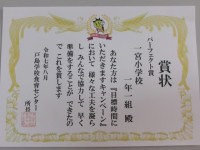 パーフェクト賞
賞状
一宮小学校
一年一組 殿
あなた方は『目標時間に
いただきますキャンペーン』
において 様々な工夫を凝ら
し みんなで協力して 早く
準備をすることが できたの
で これを賞します
令和七年八月
戸島学校食育センター
所長